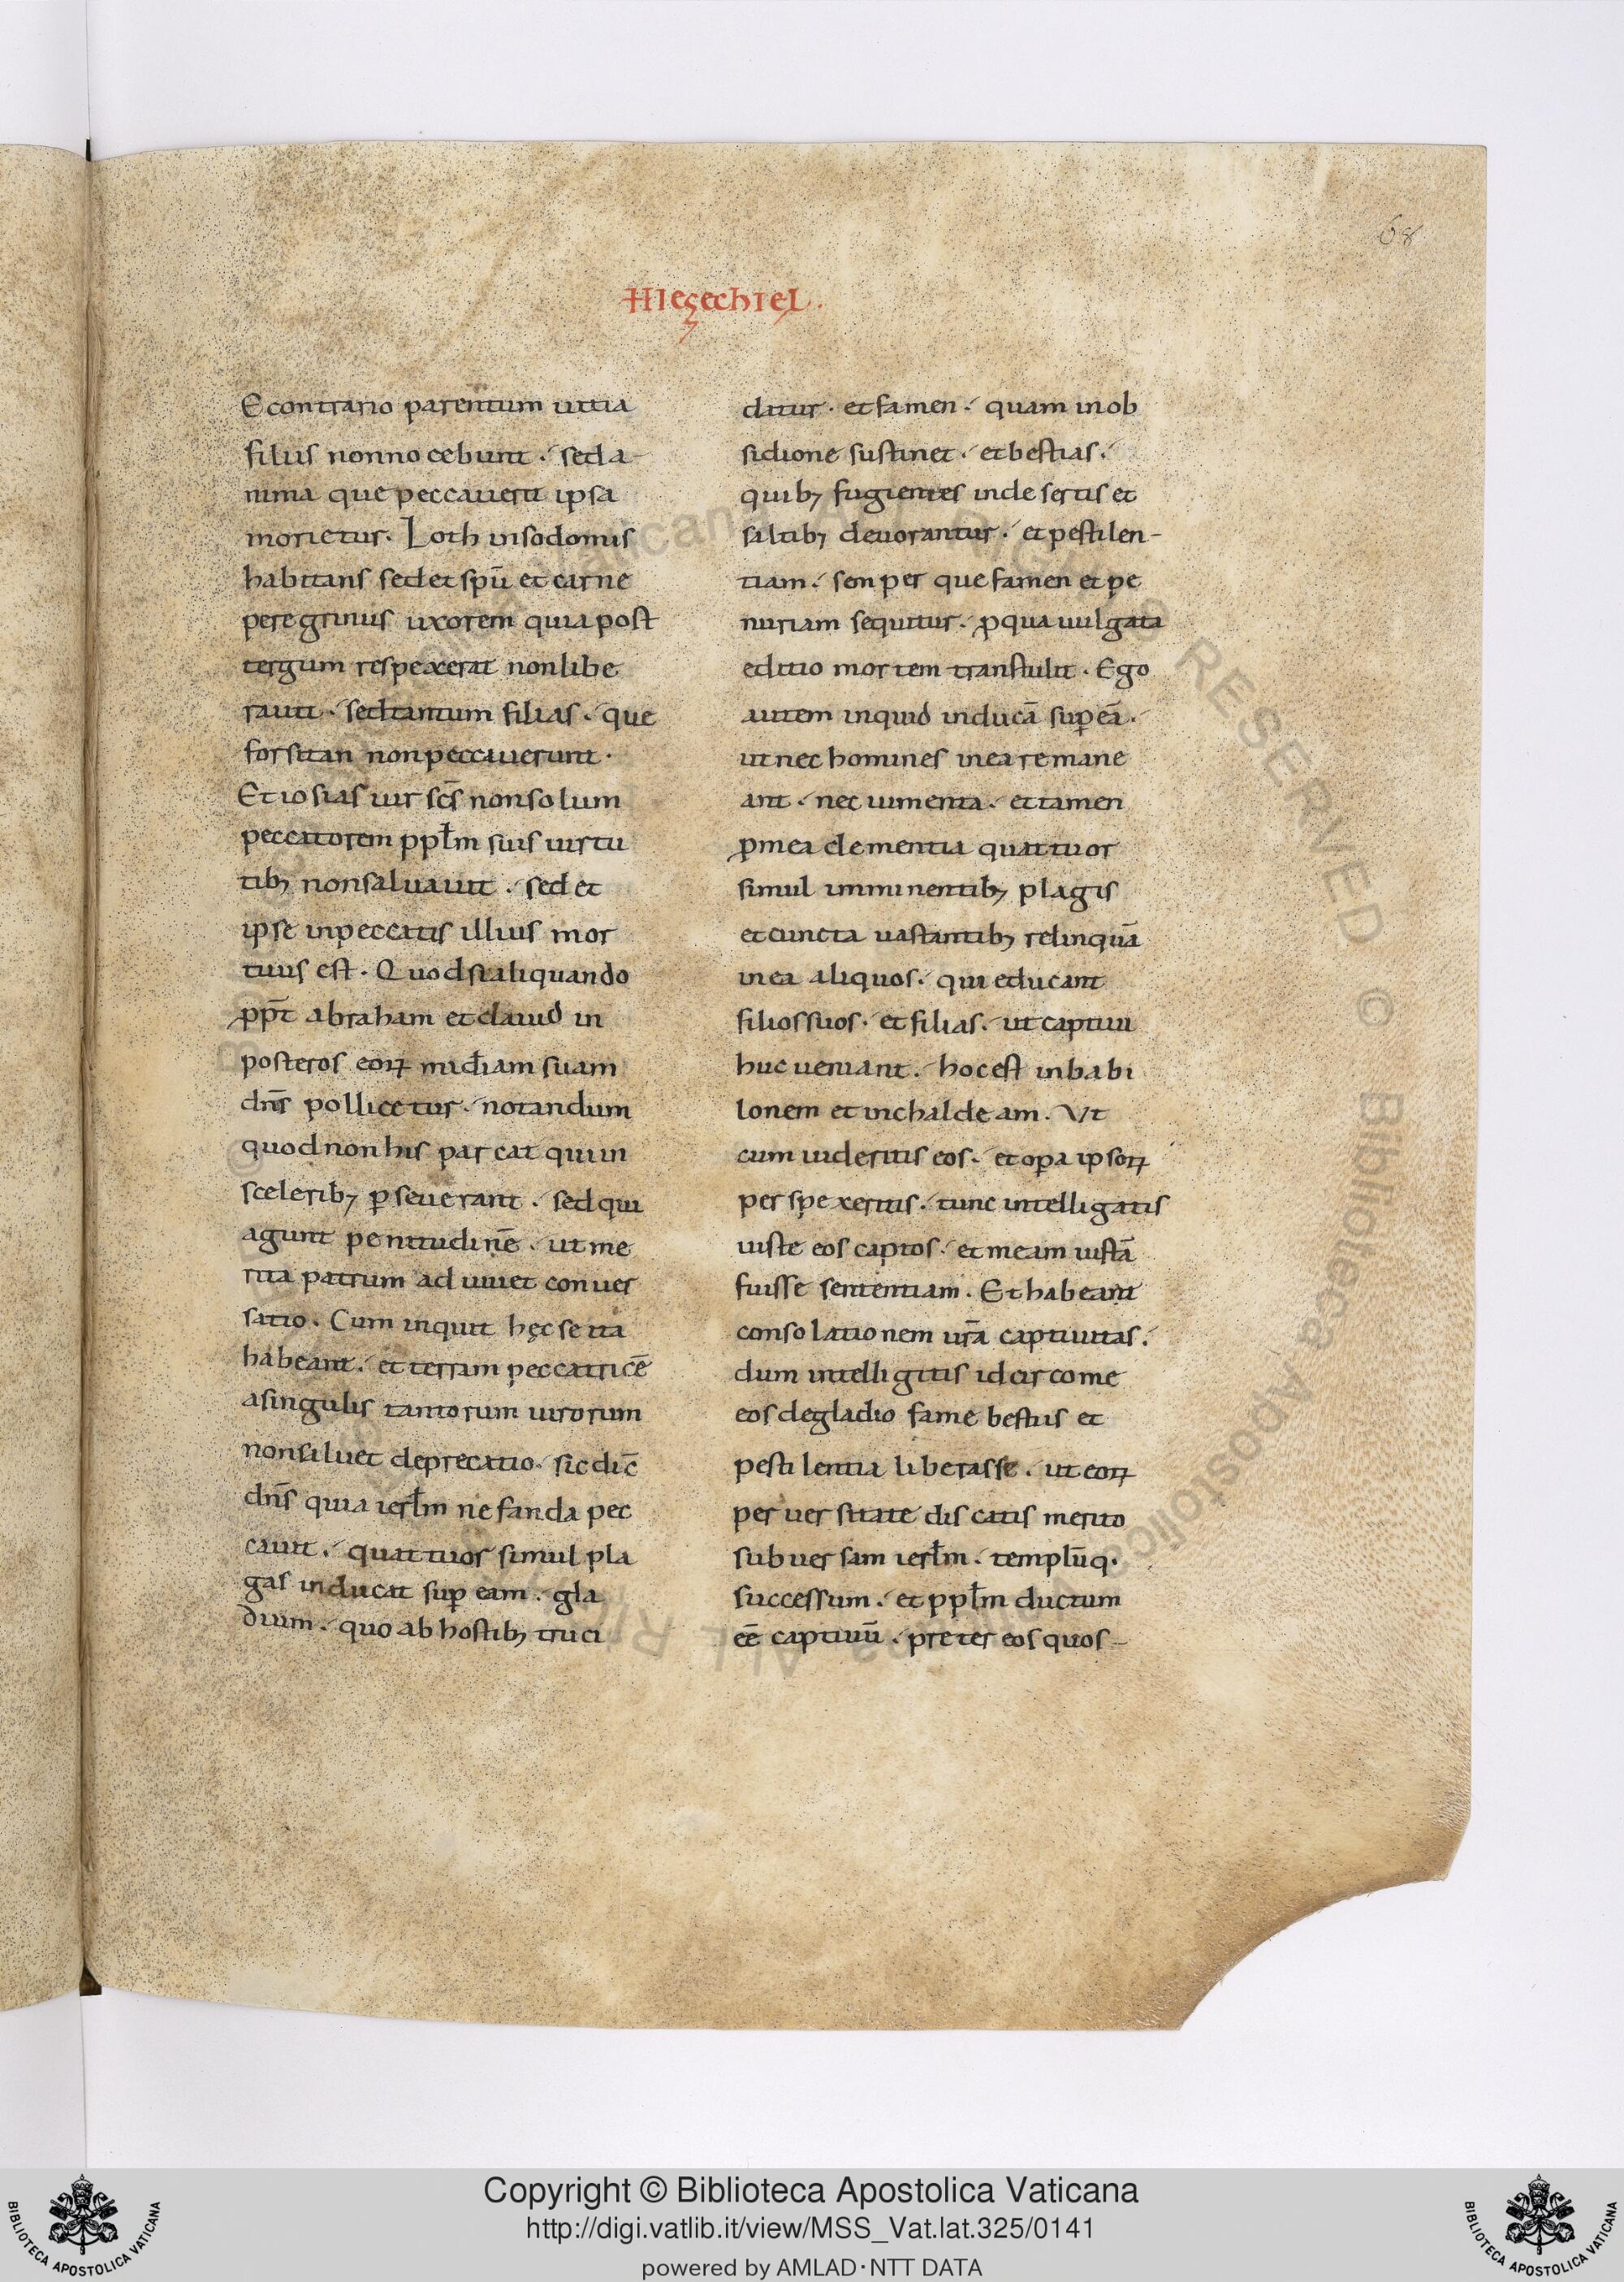 68
Hiezechiel.
E contrario parentum uitia
filiis non nocebunt. sed a-
nima que peccauerit ipsa
morietur. Loth in sodomis
habitans sed et spū et carne
peregrinus uxorem quia post
tergum respexerat non libe
rauit. sed tantum filias. que
forsitan non peccauerunt.
Et iosias uir scs̄ non solum
peccatorem ppłm suis uirtu
tibꝫ non saluauit. sed et
ipse in peccatis illius mor
tuus est. Quod si aliquando
ꝓpt̄ abraham et dauid in
posteros eoꝝ mīdiam suam
dn̄s pollicetur. notandum
quod non his parcat qui in
sceleribꝫ ꝑseuerant. sed qui
agunt penitudinē. ut me
rita patrum adiuuet conuer
satio. Cum inquit hęc se ita
habeant. et terram peccatricē
a singulis tantorum uirorum
non saluet deprecatio. sic dic̄
dn̄s quia ierłm nefanda pec
cauit. quattuor simul pla
gas inducat suꝑ eam. gla
dium. quo ab hostibꝫ truci
datur. et famen. quam in ob
sidione sustinet. et bestias.
quibꝫ fugientes in desertis et
saltibꝫ deuorantur. et pestilen-
tiam. semper que famen et pe
nuriam sequitur. ꝓ qua uulgata
editio mortem transtulit. Ego
autem inquid inducā suꝑ eā.
ut nec homines in ea remane
ant. nec iumenta. et tamen
ꝓ mea clementia quattuor
simul imminentibꝫ plagis
et cuncta uastantibꝫ relinquā
in ea aliquos. qui educant
filios suos. et filias. ut captiui
huc ueniant. hoc est in babi
lonem et in chaldeam. Vt
cum uideritis eos. et oꝑa ipsoꝝ
perspexeritis. tunc intelligatis
iuste eos captos. et meam iustā
fuisse sententiam. Et habeant
consolationem ur̄a captiuitas.
dum intelligitis idcirco me
eos de gladio fame bestiis et
pestilentia liberasse. ut eoꝝ
peruersitate discatis merito
subuersam ierłm. templūq.
successum. et ppłm ductum
eē captiuū. preter eos quos-
Copyright © Biblioteca Apostolica Vaticana
http://digi.vatlib.it/view/MSS_Vat.lat.325/0141
powered by AMLAD·NTT DATA